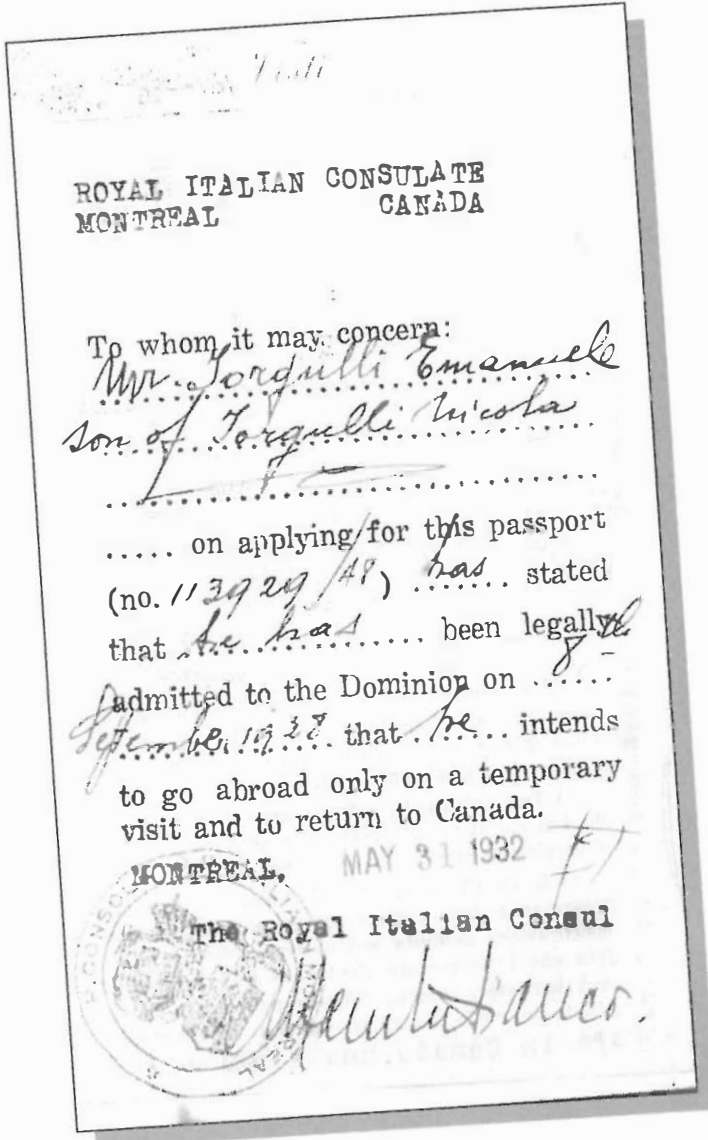 ROYAL ITALIAN CONSULATE
MONTREAL CANADA
To whom it may concern:
Mr. Torgulli Emanuele
son of Torgulli Nicola
..... on applying for this passport
(no. 113929/48) has stated
that he has been legally
admitted to the Dominion on 8th
September 1927 that he intends
to go abroad only on a temporary
visit and to return to Canada.
MONTREAL, MAY 31 1932
The Royal Italian Consul